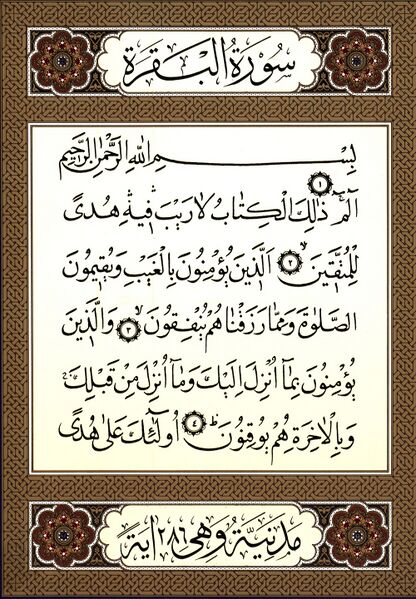 سُورَةُ الْبَقَرَةِ
بِسْمِ اللّٰهِ الرَّحْمٰنِ الرَّحِيمِ
الٓمٓ ۝١ ذٰلِكَ الْكِتَابُ لَا رَيْبَ ۛ فِيهِ ۛ هُدًى
لِلْمُتَّقِينَۙ ۝٢ اَلَّذِينَ يُؤْمِنُونَ بِالْغَيْبِ وَيُقِيمُونَ
الصَّلٰوةَ وَمِمَّا رَزَقْنَاهُمْ يُنْفِقُونَۙ ۝٣ وَالَّذِينَ
يُؤْمِنُونَ بِمَٓا اُنْزِلَ اِلَيْكَ وَمَٓا اُنْزِلَ مِنْ قَبْلِكَۚ
وَبِالْاٰخِرَةِ هُمْ يُوقِنُونَۜ ۝٤ اُو۬لٰٓئِكَ عَلٰى هُدًى
مَدَنِيَّةٌ وَهِيَ ٢٨٦ اٰيَةً